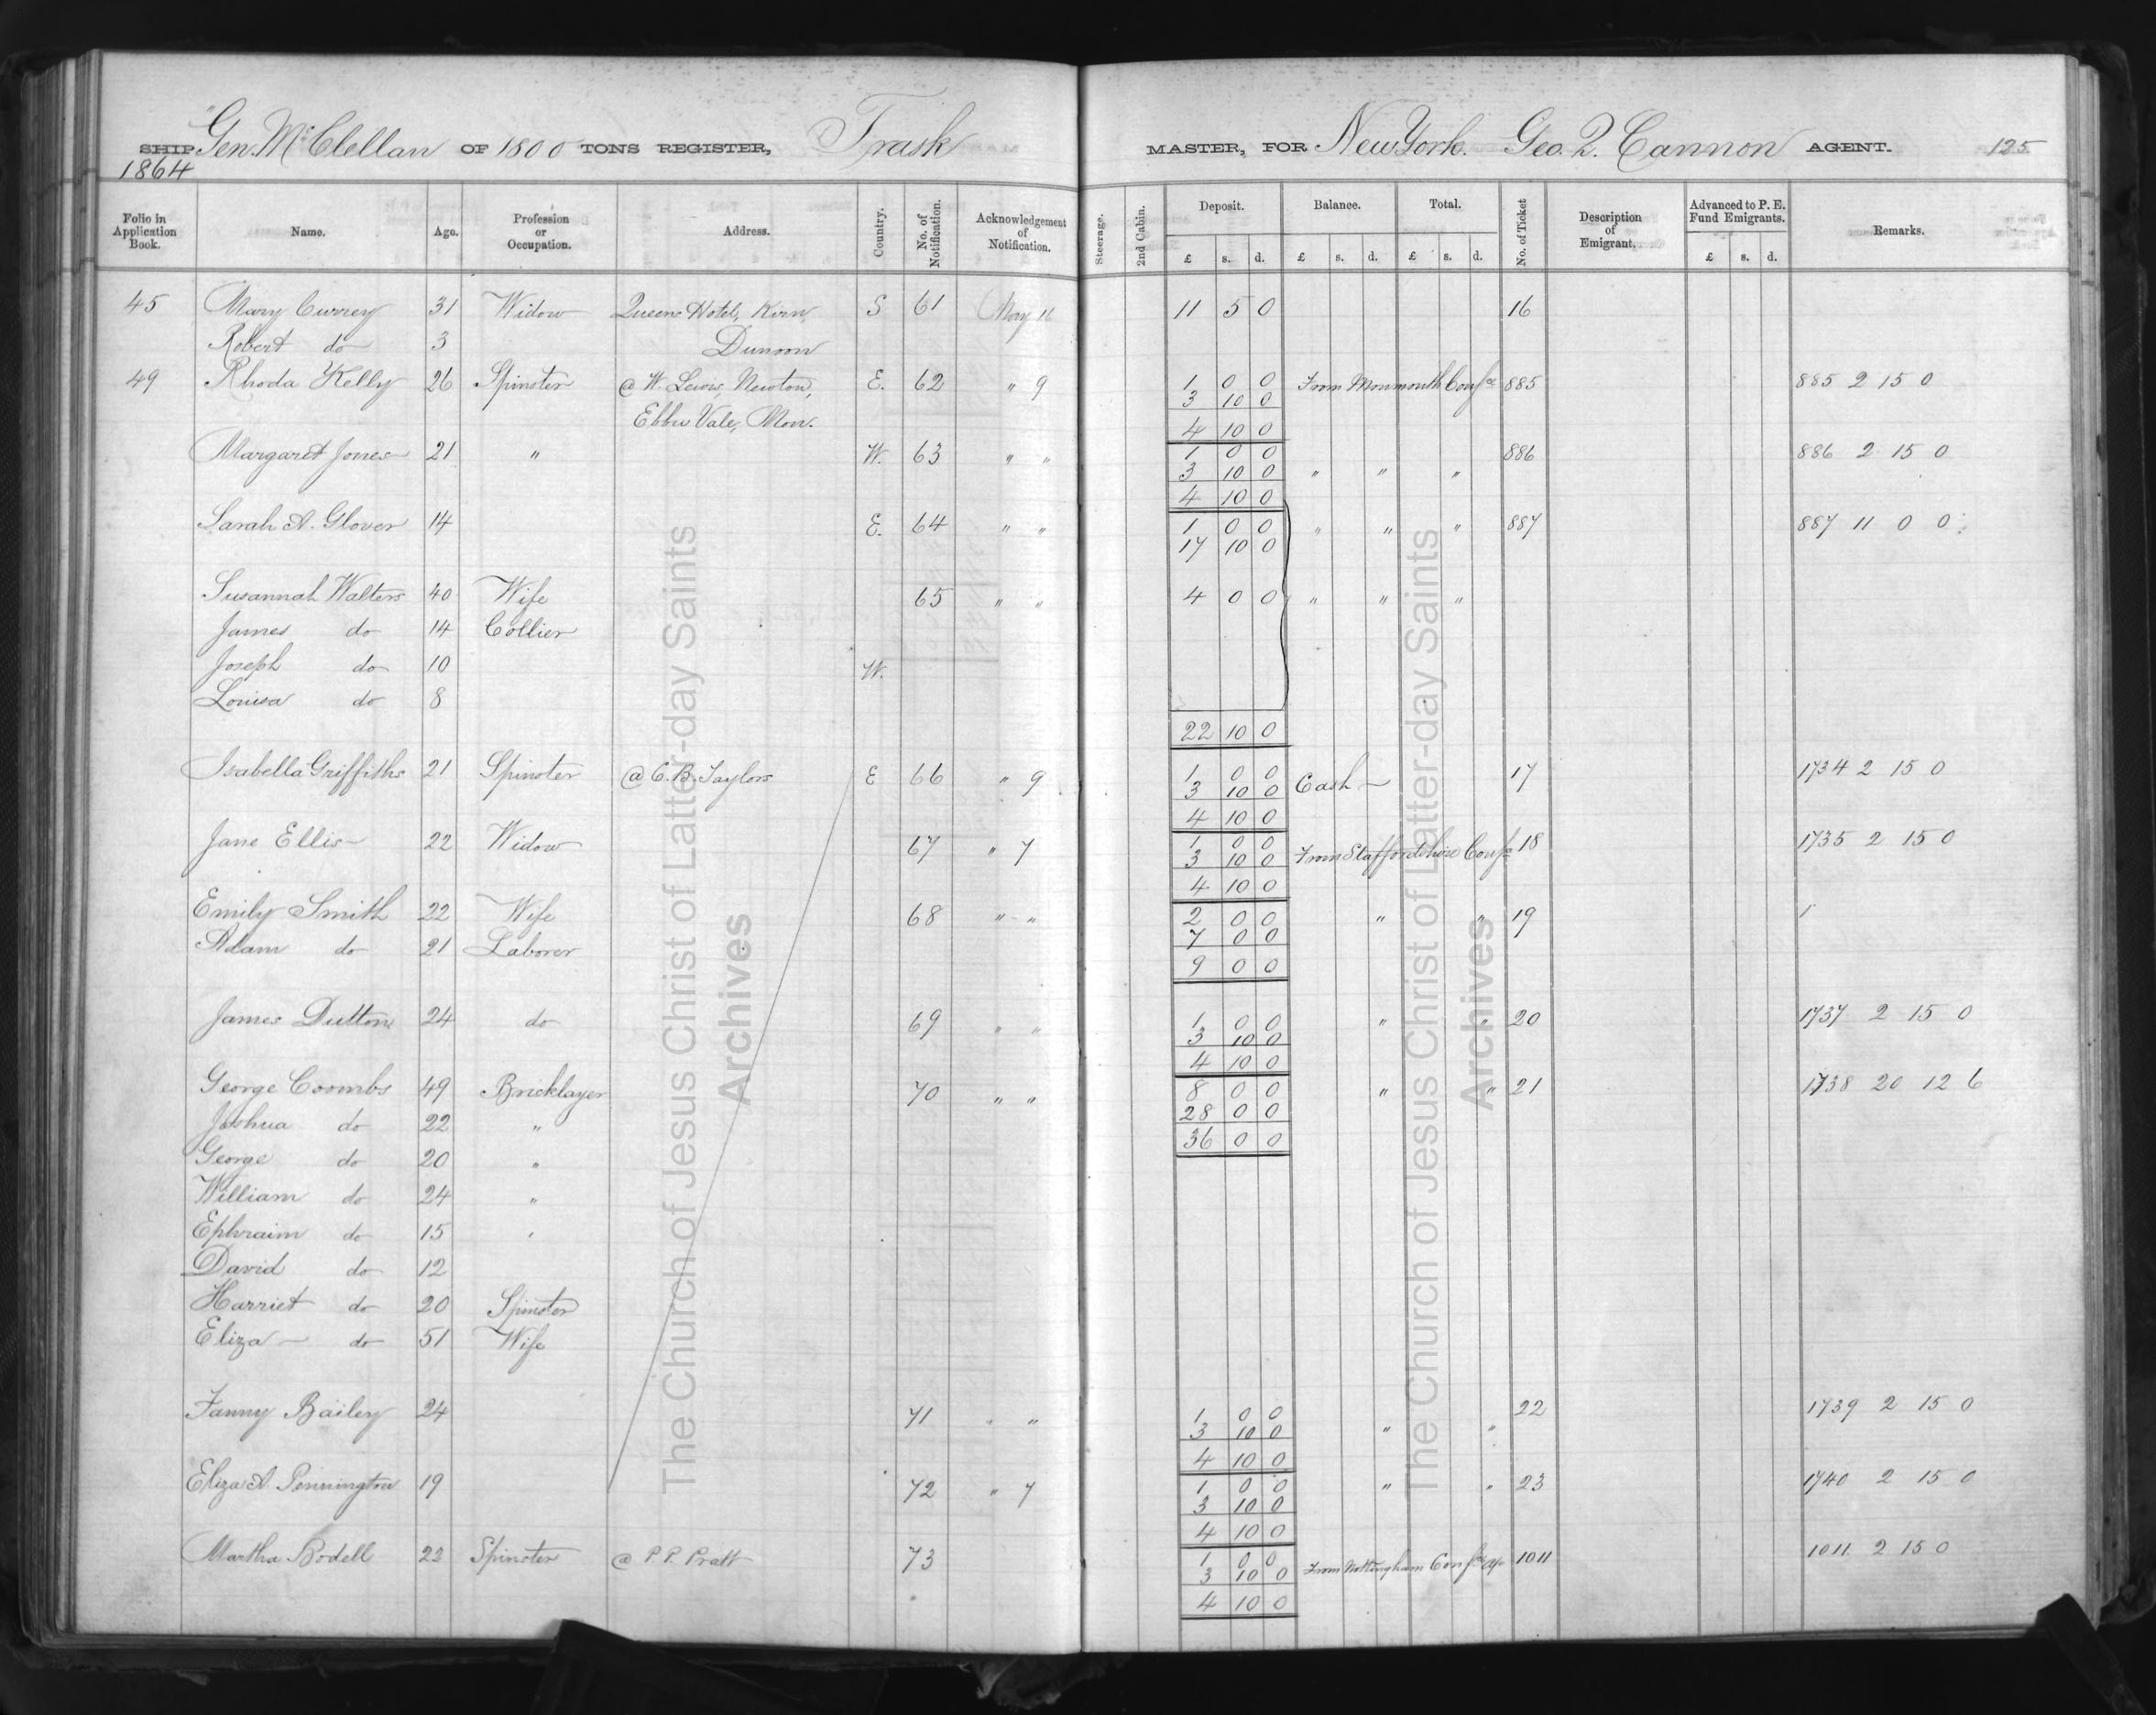 SHIP "Gen. McClellan OF 1800 TONS REGISTER, Trask MASTER, FOR New York. Geo. Q. Cannon AGENT. 125
1864
Folio in Application Book. Name. Age. Profession or Occupation. Address. Country. No. of Notification. Acknowledgement of Notification. Steerage. 2nd Cabin. Deposit. Balance. Total. No. of Ticket Description of Emigrant. Advanced to P. E. Fund Emigrants. Remarks.
£ s. d. £ s. d. £ s. d. £ s. d.
45 Mary Currey 31 Widow Queens Hotel, Kirn, S 61 May 16 11 5 0 16
Robert do 3 Dunoon
49 Rhoda Kelly 26 Spinster @ W. Lewis, Newton, E. 62 " 9 1 0 0 From Monmouth Confce 885 885 2 15 0
3 10 0
Ebbw Vale, Mon. 4 10 0
Margaret Jones 21 " W. 63 " " 1 0 0 886 886 2 15 0
3 10 0 " " "
4 10 0
Sarah A. Glover 14 E. 64 " " 1 0 0 " " " 887 887 11 0 0
17 10 0
Susannah Walters 40 Wife 65 " " 4 0 0 " " "
James do 14 Collier
Joseph do 10 W.
Louisa do 8
22 10 0
Isabella Griffiths 21 Spinster @ C. B. Taylors E 66 " 9 1 0 0 Cash 17 1734 2 15 0
3 10 0
4 10 0
Jane Ellis 22 Widow 67 " 7 1 0 0 From Staffordshire Conf. 18 1735 2 15 0
3 10 0
4 10 0
Emily Smith 22 Wife 68 " " 2 0 0 " " 19 1
Adam do 21 Laborer 7 0 0
9 0 0
James Dutton 24 do 69 " " 1 0 0 " " 20 1737 2 15 0
3 10 0
4 10 0
George Coombs 49 Bricklayer 70 " " 8 0 0 " " 21 1738 20 12 6
Joshua do 22 " 28 0 0
36 0 0
George do 20 "
William do 24 "
Ephraim do 15 '
David do 12
Harriet do 20 Spinster
Eliza do 51 Wife
Fanny Bailey 24 71 " " 1 0 0 22 1739 2 15 0
3 10 0 " "
4 10 0
Eliza A. Pennington 19 72 " 7 1 0 0 " " 23 1740 2 15 0
3 10 0
4 10 0
Martha Bodell 22 Spinster @ P. P. Pratt 73 1 0 0 From Nottingham Confce 1011 1011 2 15 0
3 10 0
4 10 0
The Church of Jesus Christ of Latter-day Saints
Archives
The Church of Jesus Christ of Latter-day Saints
Archives